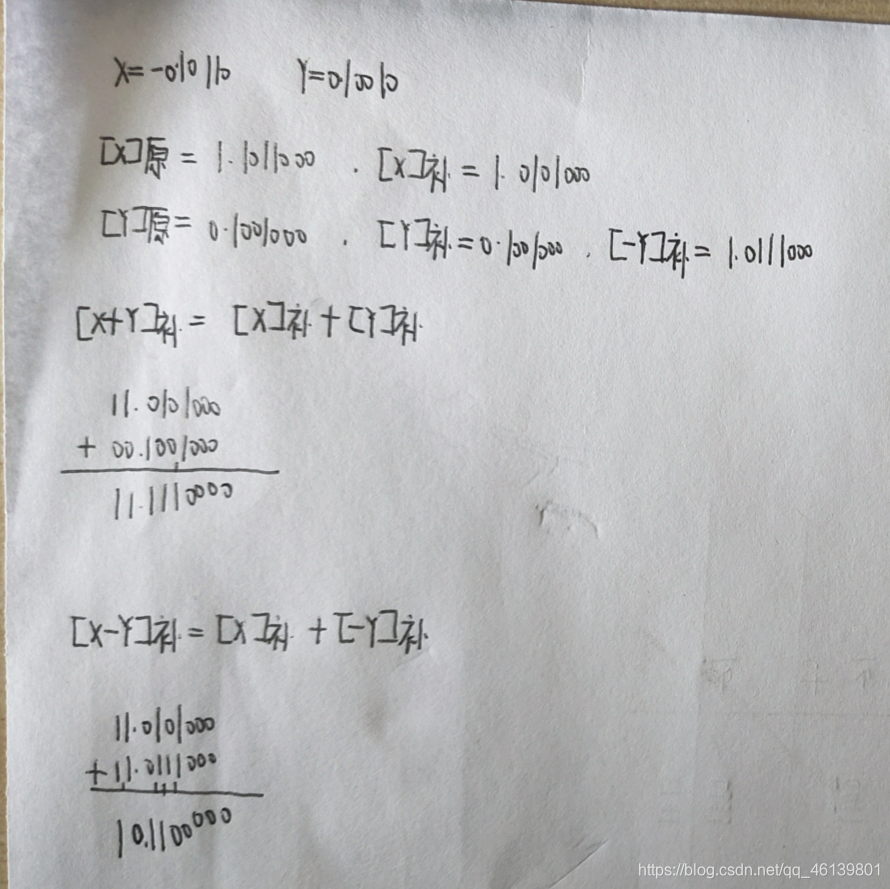 X=-0.10110 Y=0.10010
[X]原 = 1.1011000 . [X]补 = 1.0101000
[Y]原= 0.1001000 . [Y]补=0.1001000 . [-Y]补= 1.0111000
[X+Y]补 = [X]补 + [Y]补
11.0101000
+ 00.1001000
11.1110000
[X-Y]补 = [X]补 + [-Y]补
11.0101000
+11.0111000
10.1100000
https://blog.csdn.net/qq_46139801